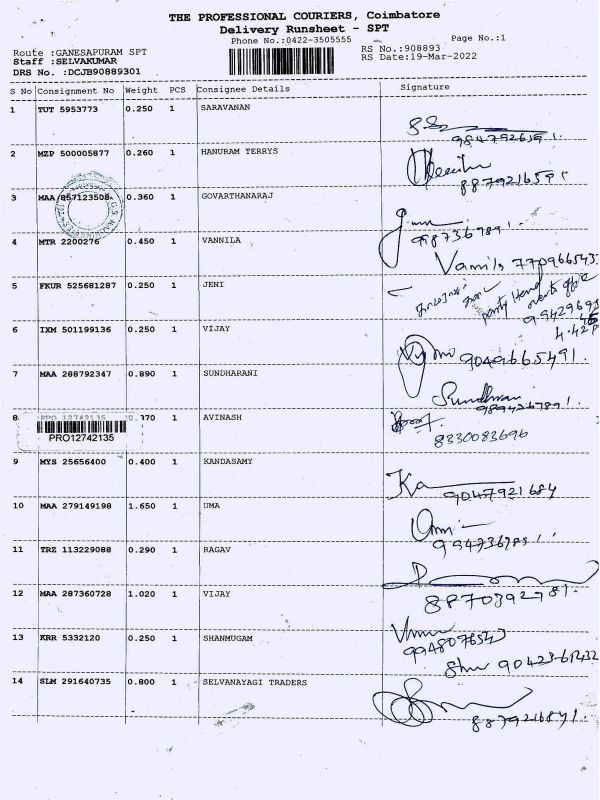 THE PROFESSIONAL COURIERS, Coimbatore
Delivery Runsheet - SPT
Phone No.:0422-3505555
Page No.:1
Route :GANESAPURAM SPT
RS No.:908893
Staff :SELVAKUMAR
RS Date:19-Mar-2022
DRS No. :DCJB90889301
S No Consignment No Weight PCS Consignee Details Signature
1 TUT 5953773 0.250 1 SARAVANAN
2 MZP 500005877 0.260 1 HANURAM TERRYS
8879216591
3 MAA 857123508 0.360 1 GOVARTHANARAJ
4 MTR 2200276 0.450 1 VANNILA
Vamila 7709665433
5 FKUR 525681287 0.250 1 JENI
6 IXM 501199136 0.250 1 VIJAY
9049665491.
7 MAA 288792347 0.890 1 SUNDHARANI
8 PRO 12742135 0.370 1 AVINASH
PRO12742135
8330083696
9 MYS 25656400 0.400 1 KANDASAMY
Ka
9047921684
10 MAA 279149198 1.650 1 UMA
11 TRZ 113229088 0.290 1 RAGAV
12 MAA 287360728 1.020 1 VIJAY
8870392781.
13 KRR 5332120 0.250 1 SHANMUGAM
14 SLM 291640735 0.800 1 SELVANAYAGI TRADERS